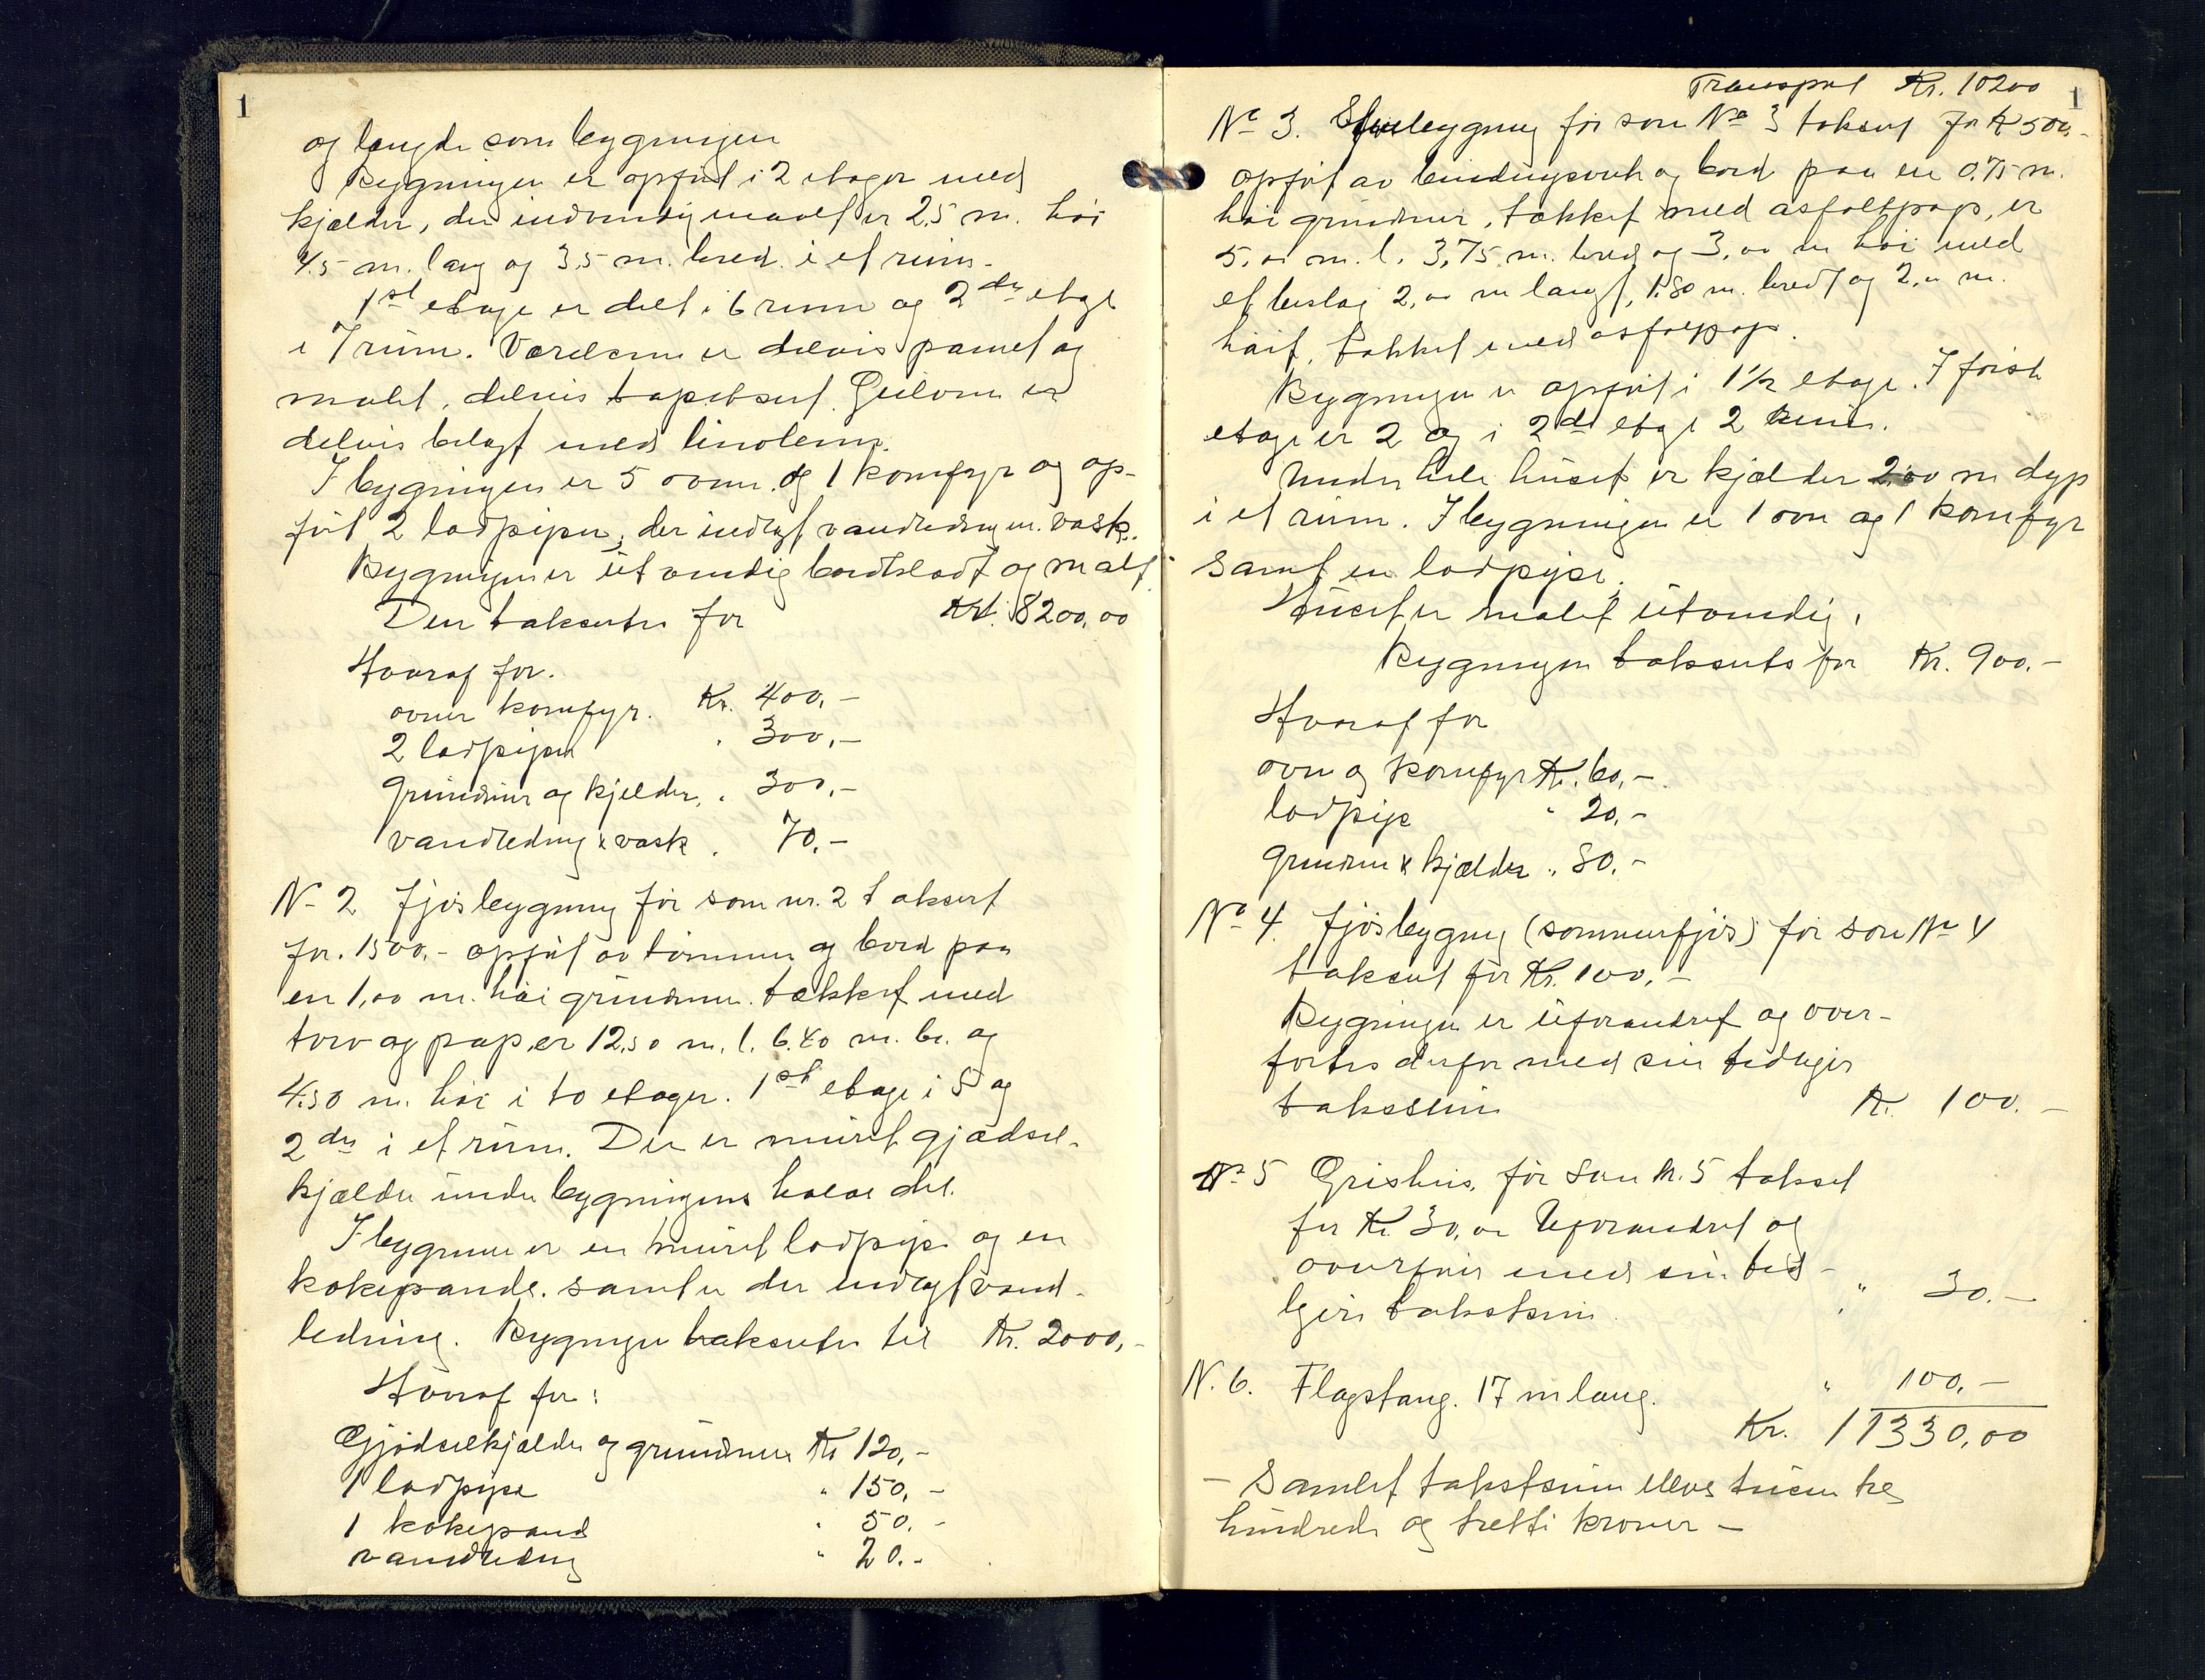 1
og længde som bygningen
Bygningen er opført i 2 etager med
kjælder, der indvendig maalt er 2,5 m. høi
4,5 m. lang og 3,5 m. bred. i et rum.
1ste etage er delt i 6 rum og 2den etage
i 7 rum. Værelserne er delvis panelt og
malet, delvis tapetsert. Gulvene er
delvis belagt med linoleum.
I bygningen er 5 ovner og 1 komfyr og op-
ført 2 lodpiper, der indlagt vandledning m. vask.
Bygningen er utvendig bordklædt og malt.
Den takseres for Kr. 8200,00
Hvoraf for.
ovner komfyr. Kr. 400,-
2 lodpiper " 300,-
Grundmur og kjelder, " 300,-
vandledning & vask " 70,-
No 2 Fjøsbygning før som nr. 2 taksert
for. 1500,- opført av tømmer og bord paa
en 1,00 m. høi grundmur. tækket med
torv og pap, er 12,50 m. l. 6.40 m. br. og
4.50 m. høi i to etager. 1ste etage i 5 og
2den i et rum. Der er muret gjødsel-
kjælder under bygningens halve del.
I bygningen er en muret lodpipe og en
kokepande. samt er der indlagt vand-
ledning. Bygningen takseres til Kr. 2000,-
Hvoraf for:
Gjødselkjælder og grundmur Kr 120,-
1 lodpipe " 150,-
1 kokepande " 50.-
vandledning " 20.-
Transport Kr. 10200
1
No 3. bygning før som No 3 taksert for Kr 500,-
opført av bindingsverk og bord paa en 0,75 m.
høi grundmur, tækket med asfaltpap, er
5,00 m. l. 3,75 m. bred og 3,00 m høi med
et bislag 2,00 m langt, 1.80 m. bredt og 2,00 m.
høit, tækket med asfaltpap.
Bygningen er opført i 1 1/2 etage. I første
etage er 2 og i 2den etage 2 rum.
Under hele huset er kjælder 2,00 m dyp
i et rum. I bygningen er 1 ovn og 1 komfyr
samt en lodpipe.
Huset er malet utvendig.
Bygningen takseres for Kr. 900.-
Hvoraf for
ovn og komfyr Kr. 60,-
lodpipe " 20,-
Grundmur & kjælder " 80,-
No 4. Fjøsbygning (sommerfjøs) før som No 4
taksert for Kr. 100,-
Bygningen er uforandret og over-
føres derfor med sin tidligere
takssum Kr. 100.-
No 5 Grishus, før som N. 5 taksert
for Kr. 30,00 Uforandret og
overføres med sin tid-
ligere takstsum " 30.-
N. 6. Flagstang. 17 m lang. " 100,-
Kr. 11330,00
- Samlet takstsum elleve tusen tre
hundrede og tretti kroner -